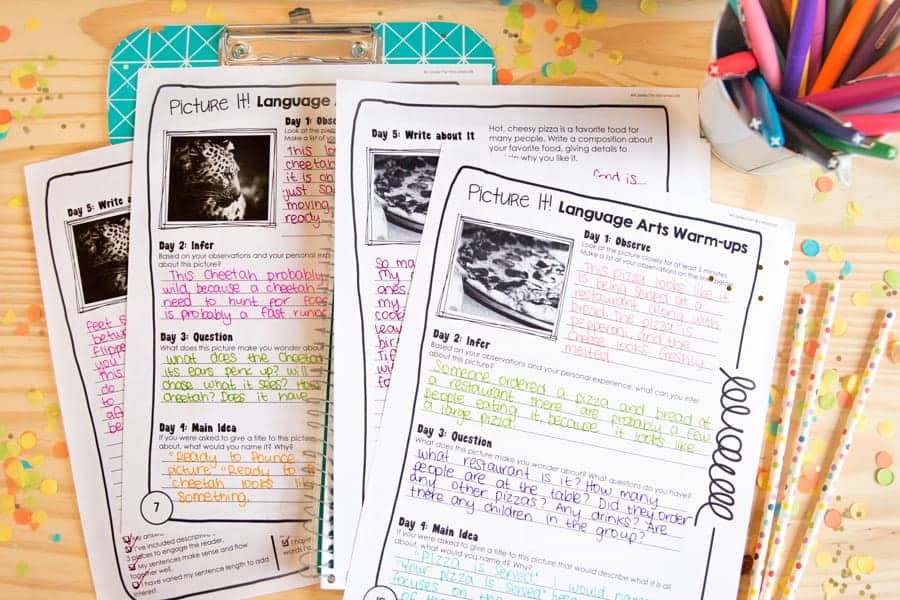 Day 5: Write a
feet s
betw
flippe
you
this
do
to
aft
be
My answ
I've included descriptive
3 pieces to engage the reader.
My sentences make sense and flow
together well.
I have varied my sentence length to add
interest.
I ha
words I'
Picture It! Language A
Day 1: Obse
Look at the pic
Make a list of yo
This lo
cheetah
it is on
just sa
moving
ready
Day 2: Infer
Based on your observations and your personal exp
about this picture?
This cheetah probably
wild, because a cheetah
need to hunt for foo
is probably a fast runne
Day 3: Question
What does this picture make you wonder abou
What does the cheetah
its ears perk up? Will
chase what it sees? How
cheetah? Does it have
Day 4: Main Idea
If you were asked to give a title to this pictur
about, what would you name it? Why?
"Ready to Pounce
picture "Ready to P
cheetah looks lik
something.
7
Day 5: Write about it
Hot, cheesy pizza is a favorite food for
many people. Write a composition about
your favorite food, giving details to
in why you like it.
food is
So ma
My
ones
my
cook
leav
bir
Tif
wit
fo
Picture It! Language Arts Warm-ups
Day 1: Observe
Look at the picture closely for at least 2 minutes.
Make a list of your observations on the lines below.
This pizza looks like it
is being served at a
restaurant along with
bread. The pizza is
pepperoni, and the
cheese looks freshly
melted.
Day 2: Infer
Based on your observations and your personal experience, what can you infer
about this picture?
Someone ordered a pizza and bread at
a restaurant. There are probably a few
people eating it, because it looks like
a large pizza.
Day 3: Question
What does this picture make you wonder about? What questions do you have?
What restaurant is it? How many
people are at the table? Did they order
any other pizzas? Any drinks? Are
there any children in the group?
Day 4: Main Idea
If you were asked to give a title to this picture that would describe what it is all
about, what would you name it? Why?
"Pizza is Served" I would name
"Your pizza is served" beca
focuses on the